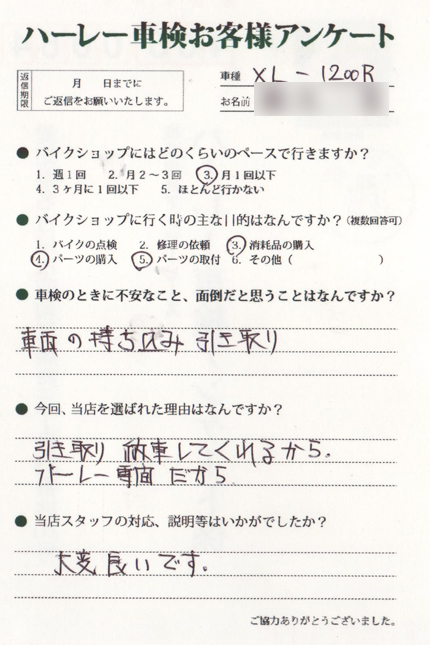 ハーレー車検お客様アンケート
返信期限
月 日までに
ご返信をお願いいたします。
車種 XL-1200R
お名前
● バイクショップにはどのくらいのペースで行きますか?
1. 週1回 2. 月2〜3回 3. 月1回以下
4. 3ヶ月に1回以下 5. ほとんど行かない
● バイクショップに行く時の主な目的はなんですか?(複数回答可)
1. バイクの点検 2. 修理の依頼 3. 消耗品の購入
4. パーツの購入 5. パーツの取付 6. その他( )
● 車検のときに不安なこと、面倒だと思うことはなんですか?
車両の持ち込み 引き取り
● 今回、当店を選ばれた理由はなんですか?
引き取り 納車してくれるから。
ハーレー専門だから
● 当店スタッフの対応、説明等はいかがでしたか?
大変良いです。
ご協力ありがとうございました。